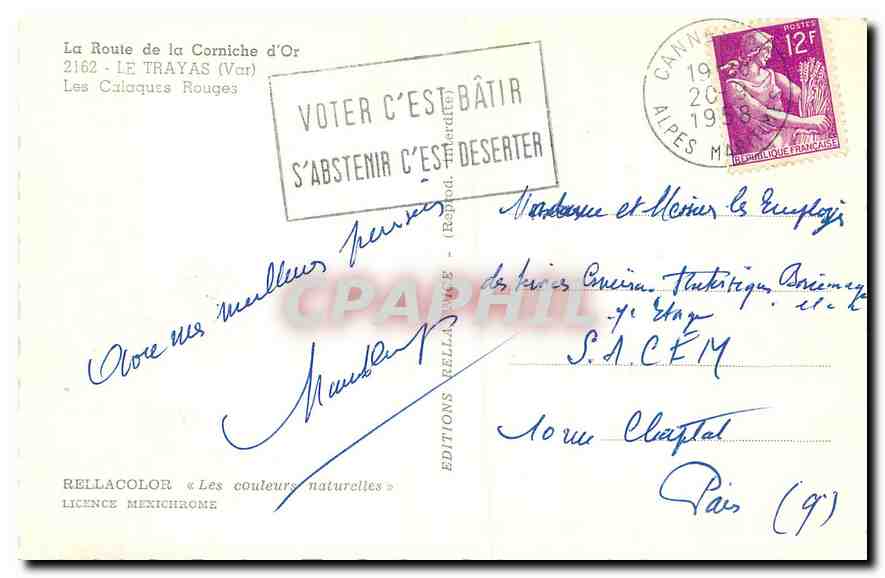 La Route de la Corniche d'Or
2162 - LE TRAYAS (Var)
Les Calaques Rouges
VOTER C'EST BÂTIR
S'ABSTENIR C'EST DESERTER
CANNE
19
20
1958
ALPES M
POSTES
12F
REPUBLIQUE FRANCAISE
EDITIONS RELLA NICE - (Reprod. Interdite)
CPAPHIL
Avec mes meilleures pensées
et Messieurs les Employés
des Services
7e Etage
S.A.C.E.M
10 rue Chaptal
Paris (9)
RELLACOLOR « Les couleurs naturelles »
LICENCE MEXICHROME